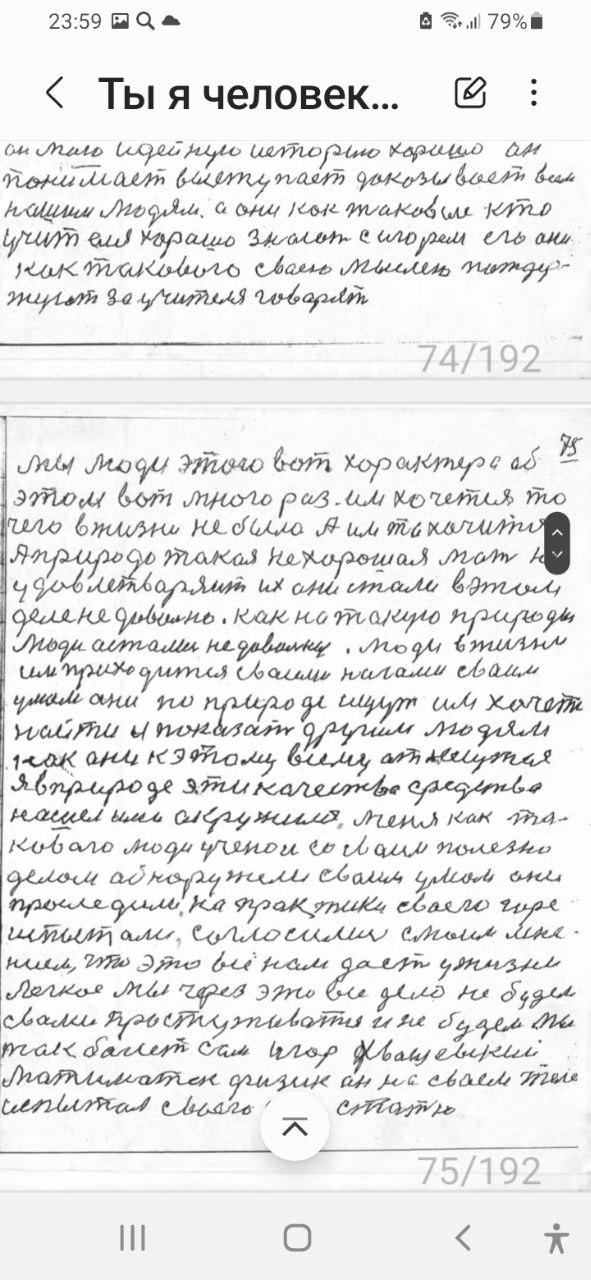 23:59
79%
Ты я человек...
он маю идейную историю хорошо он
понимает выступает доказывает всем
нашим людям. а они как таковые кто
учителя хорошо знают с игорем его они
как такового своею мыслею поддер-
жуют за учителя говарят
74/192
75
мы люди этого вот характера об
этом вот много раз. им хочется то
чего в жизни не было А им то хочится
А природо такая не хорошая мат
удовлетваряит их они стали в этом
деле не довольно. как на такую природы
люди астались недовольну. люди в жизни
им приходится своими нагами своим
умом ани по природе ищут им хочет
найти и показат другим людям
как ани к этому всему относился
я в природе эти качества средства
нашел ими окружился. меня как та-
коваго люди ученои со своим полезно
делом абноружели своим умом они
проследили, на практики своего горе
испытали, согласились с моим мне-
нием, что это всё нам дает у жизни
легкое мы через это все дело не будем
свами простуживатся и не будем мы
так болет сам игор Хвощевский
математик физик он на своем теле
испытал своего статю
75/192